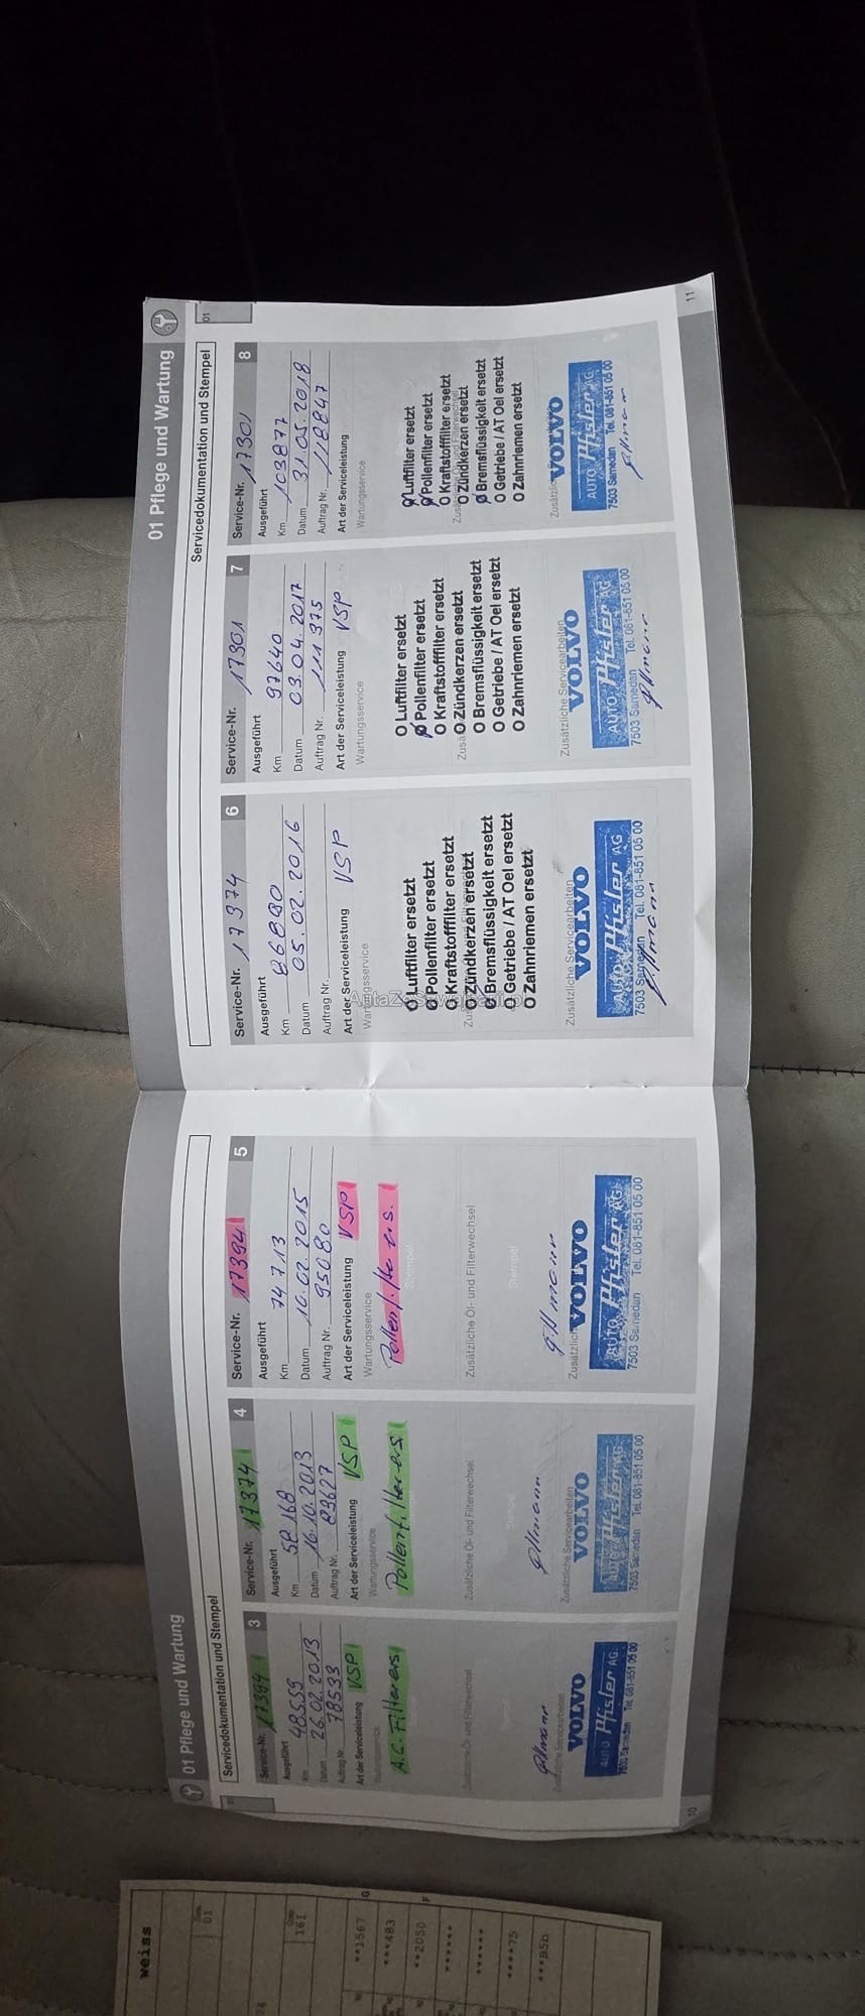 01 Pflege und Wartung
Servicedokumentation und Stempel
Service-Nr. 17394 3
Ausgeführt
Km 48559
Datum 26.02.2013
Auftrag Nr. 78533
Art der Serviceleistung VSP
Wartungsservice
A.C. Filter ers
Zusätzliche Öl- und Filterwechsel
Zusätzliche Servicearbeiten
VOLVO
AUTO Pfister AG
7503 Samedan Tel. 081-851 05 00
Service-Nr. 17374 4
Ausgeführt
Km 58168
Datum 16.10.2013
Auftrag Nr. 83627
Art der Serviceleistung VSP
Wartungsservice
Pollenfilter ers
Zusätzliche Öl- und Filterwechsel
Stempel
Zusätzliche Servicearbeiten
VOLVO
AUTO Pfister AG
7503 Samedan Tel. 081-851 05 00
Service-Nr. 17394 5
Ausgeführt
Km 74713
Datum 10.02.2015
Auftrag Nr. 95080
Art der Serviceleistung VSP
Wartungsservice
Pollenfilter ers.
Stempel
Zusätzliche Öl- und Filterwechsel
Stempel
Zusätzlic
VOLVO
AUTO Pfister AG
7503 Samedan Tel. 081-851 05 00
10
01 Pflege und Wartung
01
Servicedokumentation und Stempel
Service-Nr. 17374 6
Ausgeführt
Km 86890
Datum 05.02.2016
Auftrag Nr.
Art der Serviceleistung VSP
Wartungsservice
O Luftfilter ersetzt
O Pollenfilter ersetzt
O Kraftstofffilter ersetzt
O Zündkerzen ersetzt
O Bremsflüssigkeit ersetzt
O Getriebe / AT Oel ersetzt
O Zahnriemen ersetzt
Zusätzliche Servicearbeiten
VOLVO
AUTO Pfister AG
7503 Samedan Tel. 081-851 05 00
Service-Nr. 17301 7
Ausgeführt
Km 97640
Datum 03.04.2017
Auftrag Nr. 111375
Art der Serviceleistung VSP
Wartungsservice
O Luftfilter ersetzt
O Pollenfilter ersetzt
O Kraftstofffilter ersetzt
O Zündkerzen ersetzt
O Bremsflüssigkeit ersetzt
O Getriebe / AT Oel ersetzt
O Zahnriemen ersetzt
Zusätzliche Servicearbeiten
VOLVO
AUTO Pfister AG
7503 Samedan Tel. 081-851 05 00
Service-Nr. 17301 8
Ausgeführt
Km 103877
Datum 31.05.2018
Auftrag Nr. 118847
Art der Serviceleistung
Wartungsservice
O Luftfilter ersetzt
O Pollenfilter ersetzt
O Kraftstofffilter ersetzt
O Zündkerzen ersetzt
O Bremsflüssigkeit ersetzt
O Getriebe / AT Oel ersetzt
O Zahnriemen ersetzt
Zusätzlic
VOLVO
AUTO Pfister AG
7503 Samedan Tel. 081-851 05 00
11
weiss
01
161
**1567 G
***483
**2050 F
******
******
****75